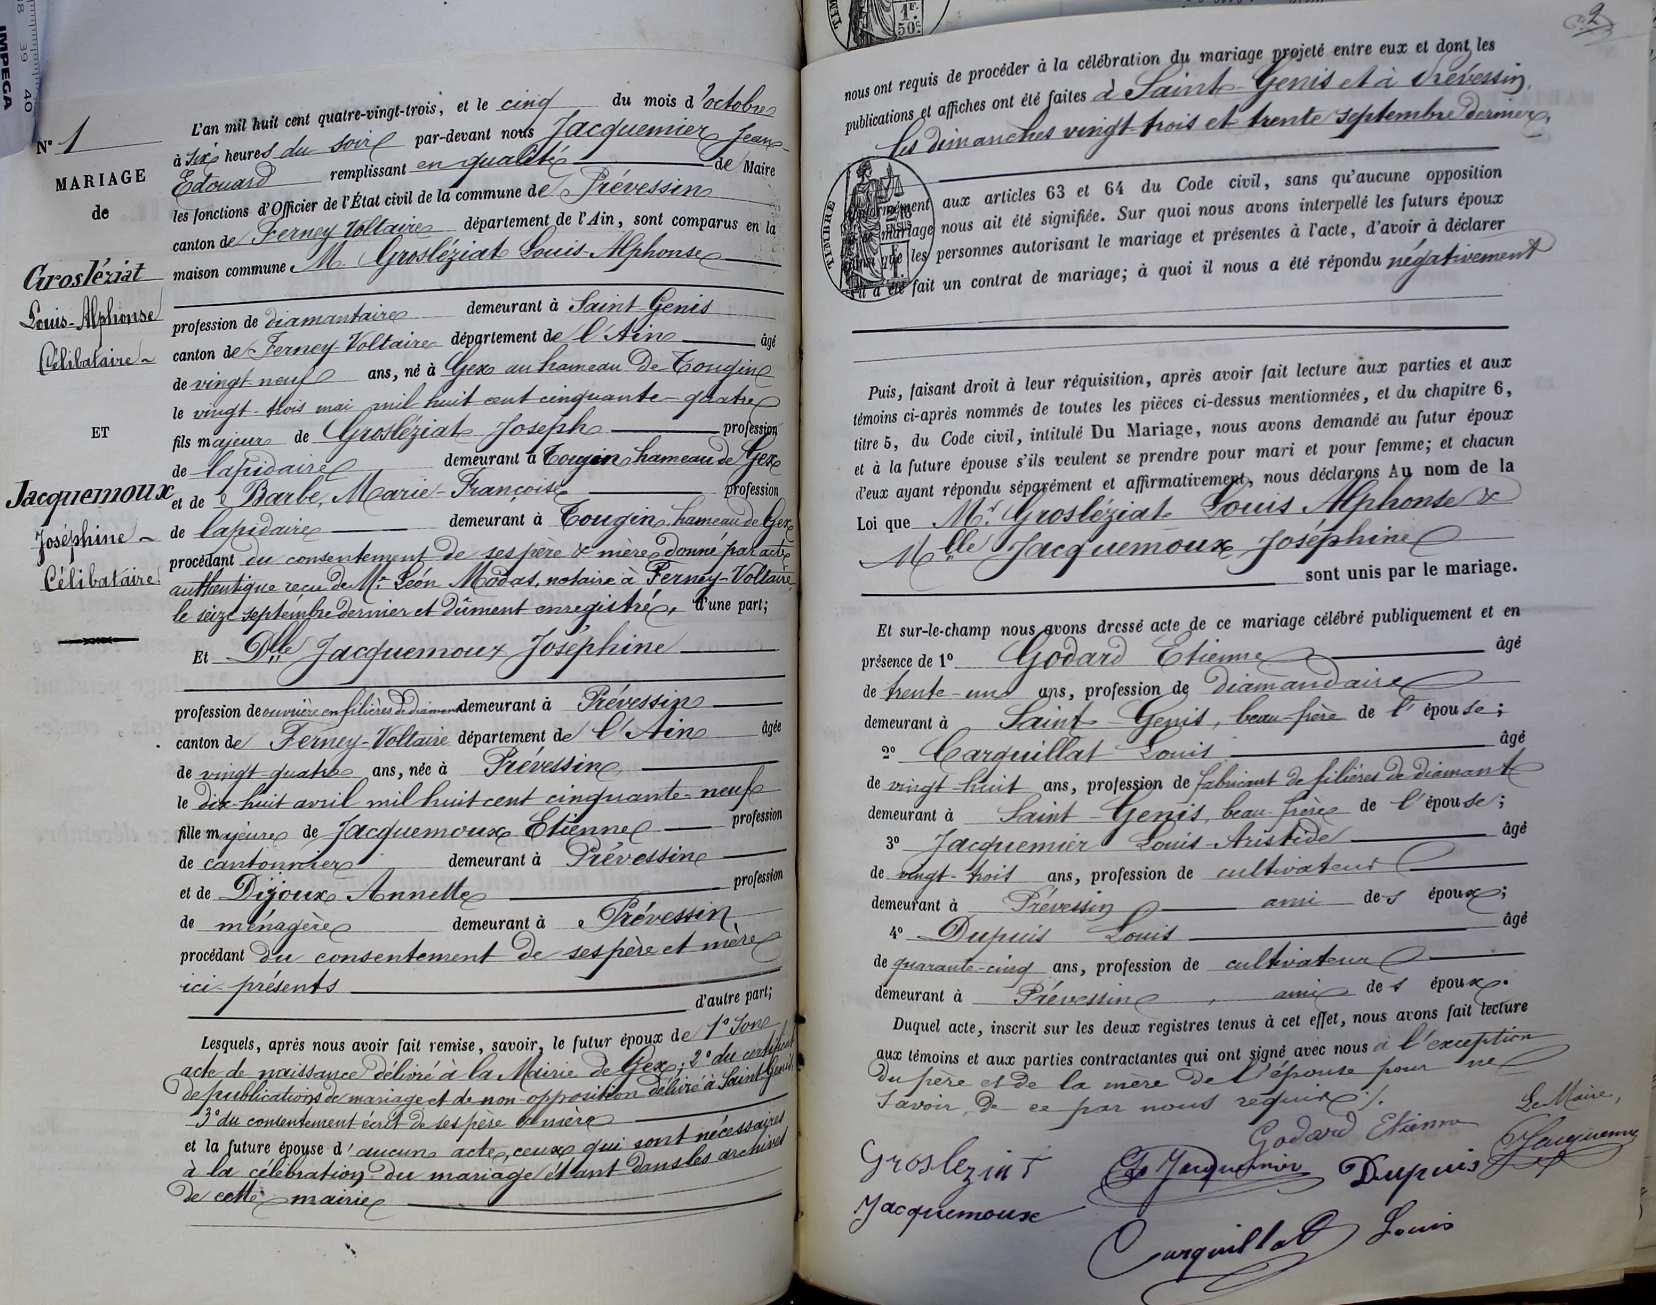 IMPEGA
38 39 40
1F.
50c.
N° 1
MARIAGE
de
Grosléziat
Louis-Alphonse
Célibataire
ET
Jacquemoux
Joséphine
Célibataire
L'an mil huit cent quatre-vingt-trois, et le cinq du mois d'octobre
à six heures du soir par-devant nous Jacquemier Jean-
Edouard remplissant en qualité de Maire
les fonctions d'Officier de l'État civil de la commune de Prévessin
canton de Ferney Voltaire département de l'Ain, sont comparus en la
maison commune M. Grosléziat Louis-Alphonse
profession de diamantaire demeurant à Saint Genis
canton de Ferney-Voltaire département de l'Ain âgé
de vingt neuf ans, né à Gex au hameau De Tougin
le vingt-trois mai mil huit cent cinquante-quatre
fils majeur de Grosléziat Joseph profession
de lapidaire demeurant à Tougin hameau de Gex
et de Barbe, Marie-Françoise profession
de lapidaire demeurant à Tougin hameau de Gex
procédant du consentement de ses père & mère donné par acte
authentique reçu de Mr Léon Modas, notaire à Ferney-Voltaire
le seize septembre dernier et dûment enregistré, d'une part;
Et Dlle Jacquemoux Joséphine
profession de ouvrière en filières de diamant demeurant à Prévessin
canton de Ferney-Voltaire département de l'Ain âgée
de vingt-quatre ans, née à Prévessin
le dix-huit avril mil huit cent cinquante-neuf
fille majeure de Jacquemoux Etienne profession
de cantonnier demeurant à Prévessin
et de Dijoux Annette profession
de ménagère demeurant à Prévessin
procédant du consentement de ses père et mère
ici présents
d'autre part;
Lesquels, après nous avoir fait remise, savoir, le futur époux de 1° Son
acte de naissance délivré à la Mairie de Gex; 2° du certificat
de publications de mariage et de non-opposition délivré à Saint Genis
3° du consentement écrit de ses père & mère
et la future épouse d'aucun acte, ceux qui sont nécessaires
à la célébration du mariage étant dans les archives
de cette mairie
2
nous ont requis de procéder à la célébration du mariage projeté entre eux et dont les
publications et affiches ont été faites à Saint-Genis et à Prévessin
les dimanches vingt-trois et trente septembre dernier,
TIMBRE
aux articles 63 et 64 du Code civil, sans qu'aucune opposition
mariage nous ait été signifiée. Sur quoi nous avons interpellé les futurs époux
que les personnes autorisant le mariage et présentes à l'acte, d'avoir à déclarer
a été fait un contrat de mariage; à quoi il nous a été répondu négativement
Puis, faisant droit à leur réquisition, après avoir fait lecture aux parties et aux
témoins ci-après nommés de toutes les pièces ci-dessus mentionnées, et du chapitre 6,
titre 5, du Code civil, intitulé Du Mariage, nous avons demandé au futur époux
et à la future épouse s'ils veulent se prendre pour mari et pour femme; et chacun
d'eux ayant répondu séparément et affirmativement, nous déclarons Au nom de la
Loi que Mr Grosléziat Louis Alphonse &
Mlle Jacquemoux Joséphine
sont unis par le mariage.
Et sur-le-champ nous avons dressé acte de ce mariage célébré publiquement et en
présence de 1° Godard Etienne âgé
de trente-un ans, profession de diamandaire
demeurant à Saint-Genis, beau-frère de l'épouse;
2° Carquillat Louis âgé
de vingt huit ans, profession de fabricant de filières de diamant
demeurant à Saint-Genis, beau-frère de l'épouse;
3° Jacquemier Louis-Aristide âgé
de vingt-trois ans, profession de cultivateur
demeurant à Prévessin ami des époux;
4° Dupuis Louis âgé
de quarante-cinq ans, profession de cultivateur
demeurant à Prévessin, ami des époux.
Duquel acte, inscrit sur les deux registres tenus à cet effet, nous avons fait lecture
aux témoins et aux parties contractantes qui ont signé avec nous à l'exception
du père et de la mère de l'épouse pour ne
savoir, de ce par nous requis ./.
Le Maire,
Godard Etienne
Grosleziat
Jacquemier
Dupuis
Jacquemier
Jacquemoux
Carquillat Louis